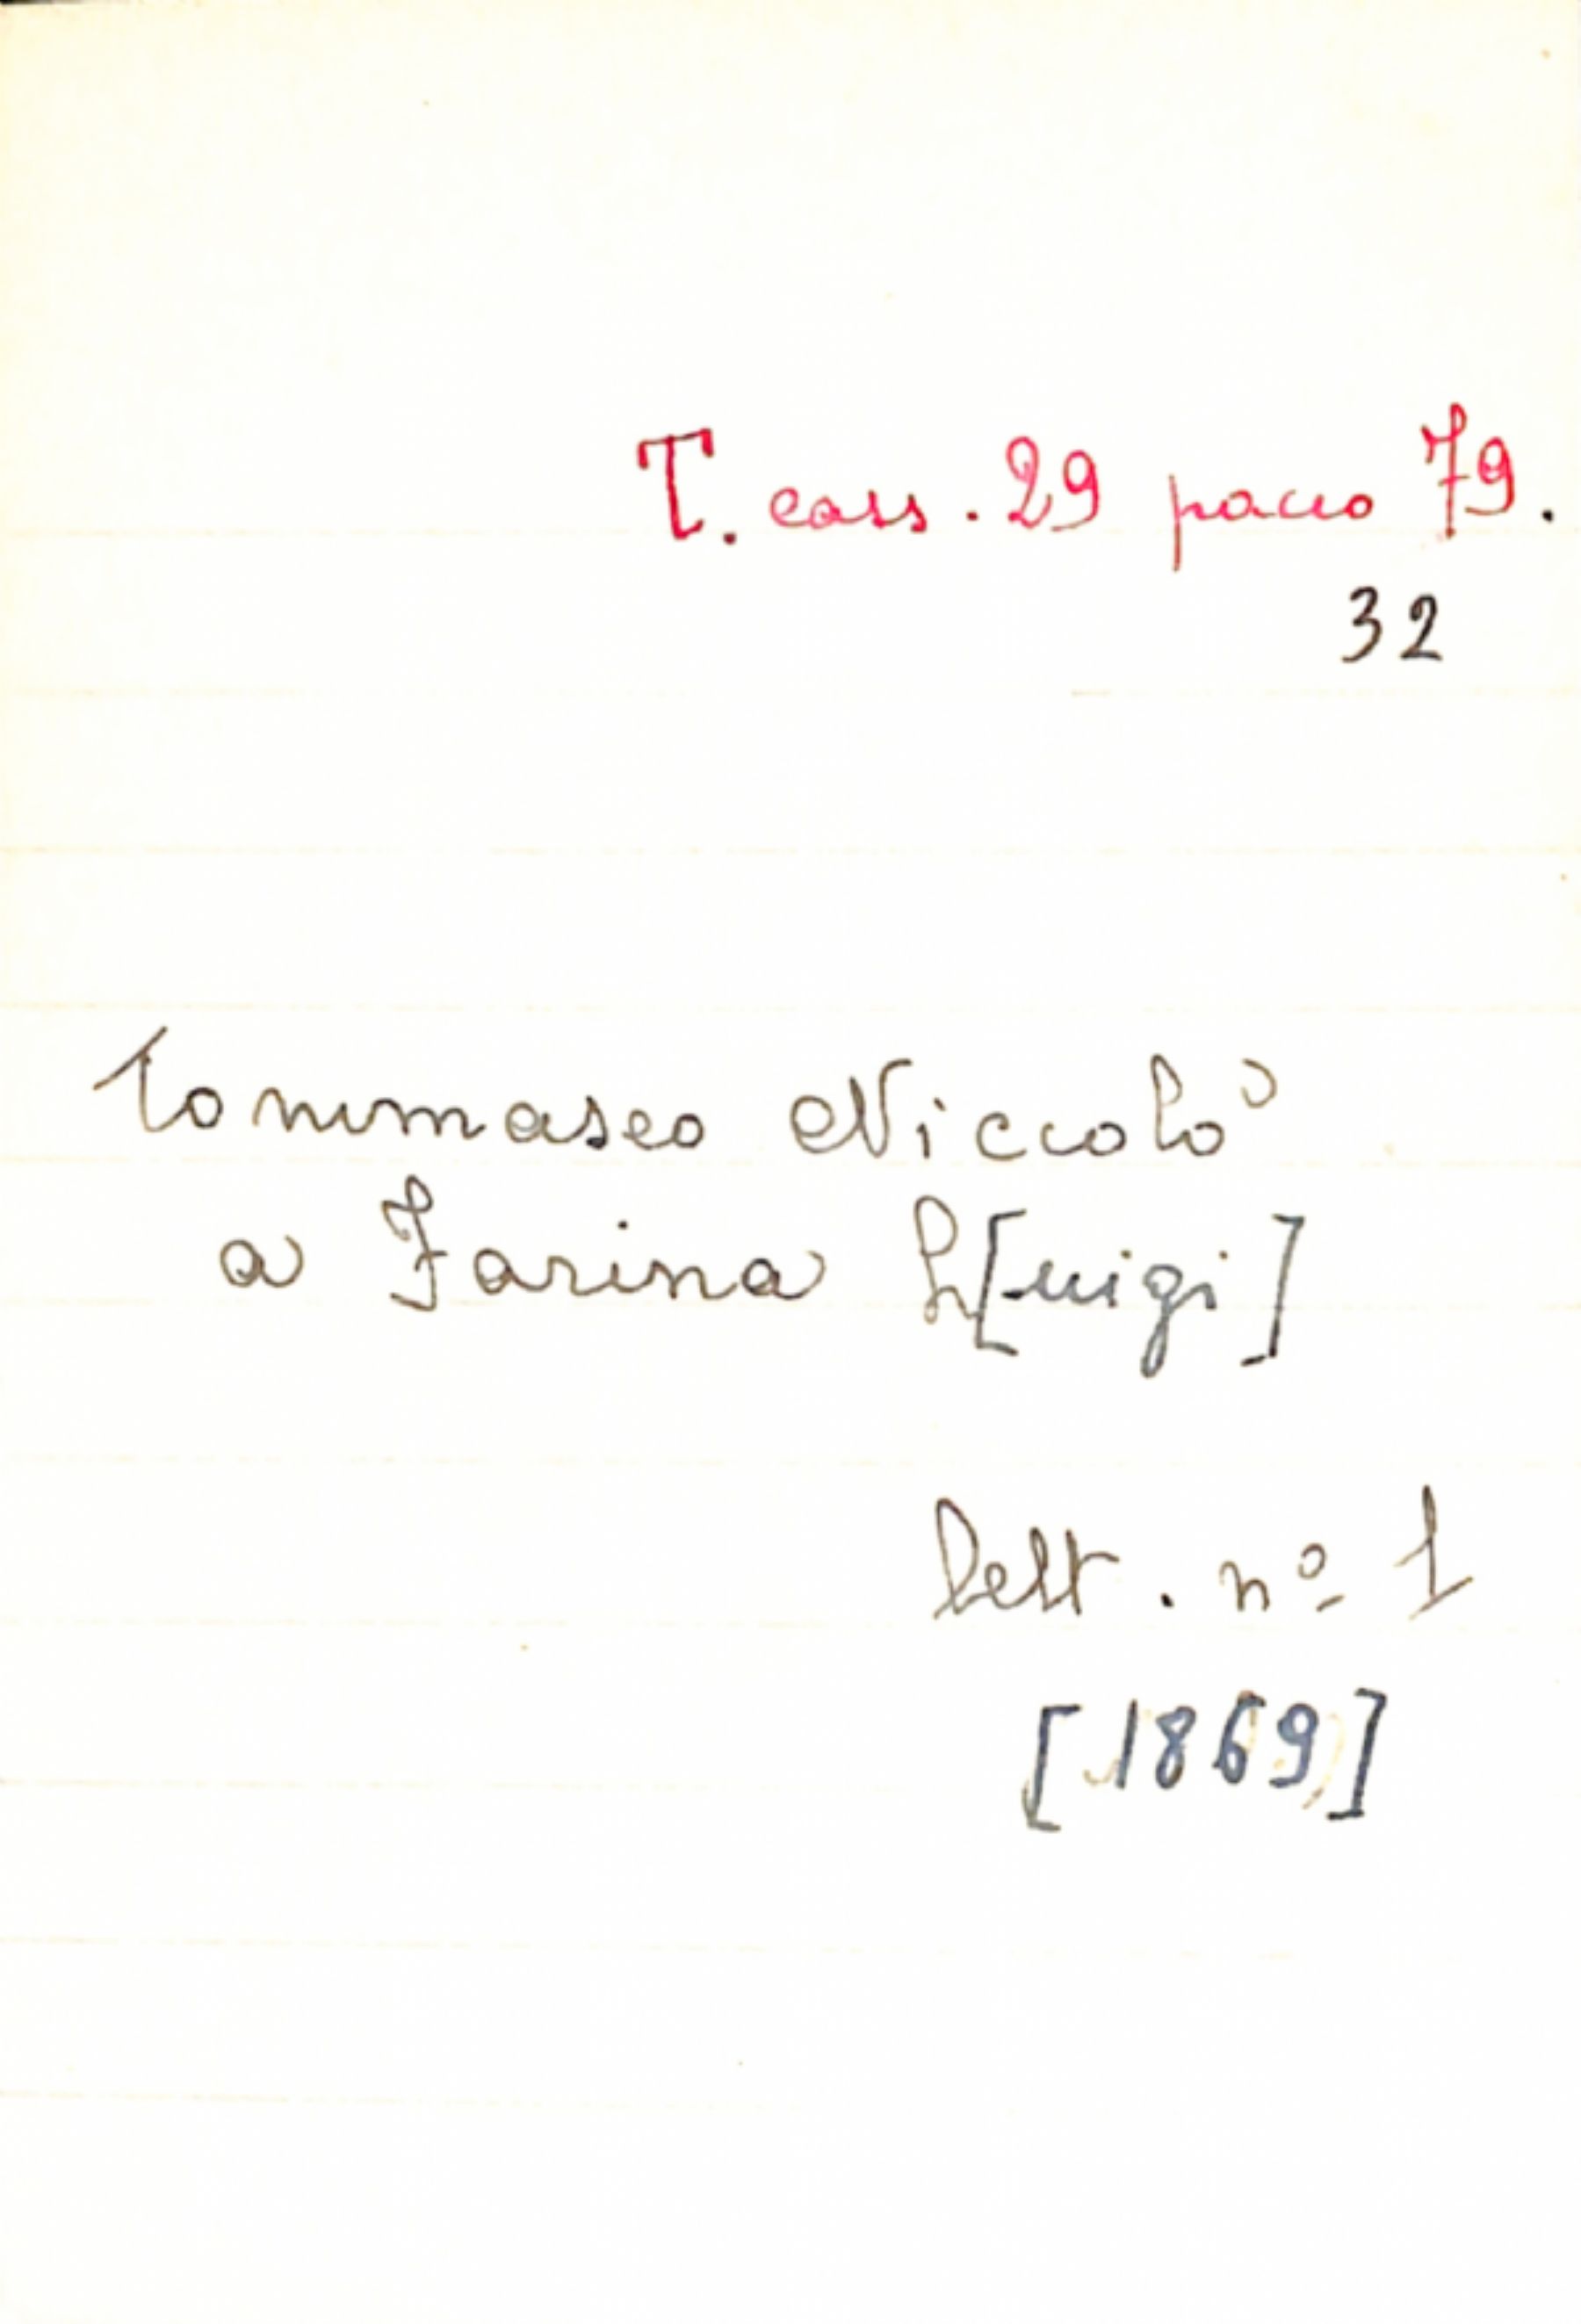 T. cass. 29 pacco 79.
32
Tommaseo Niccolò
a Farina L[uigi]
lett. nº 1
[1869]